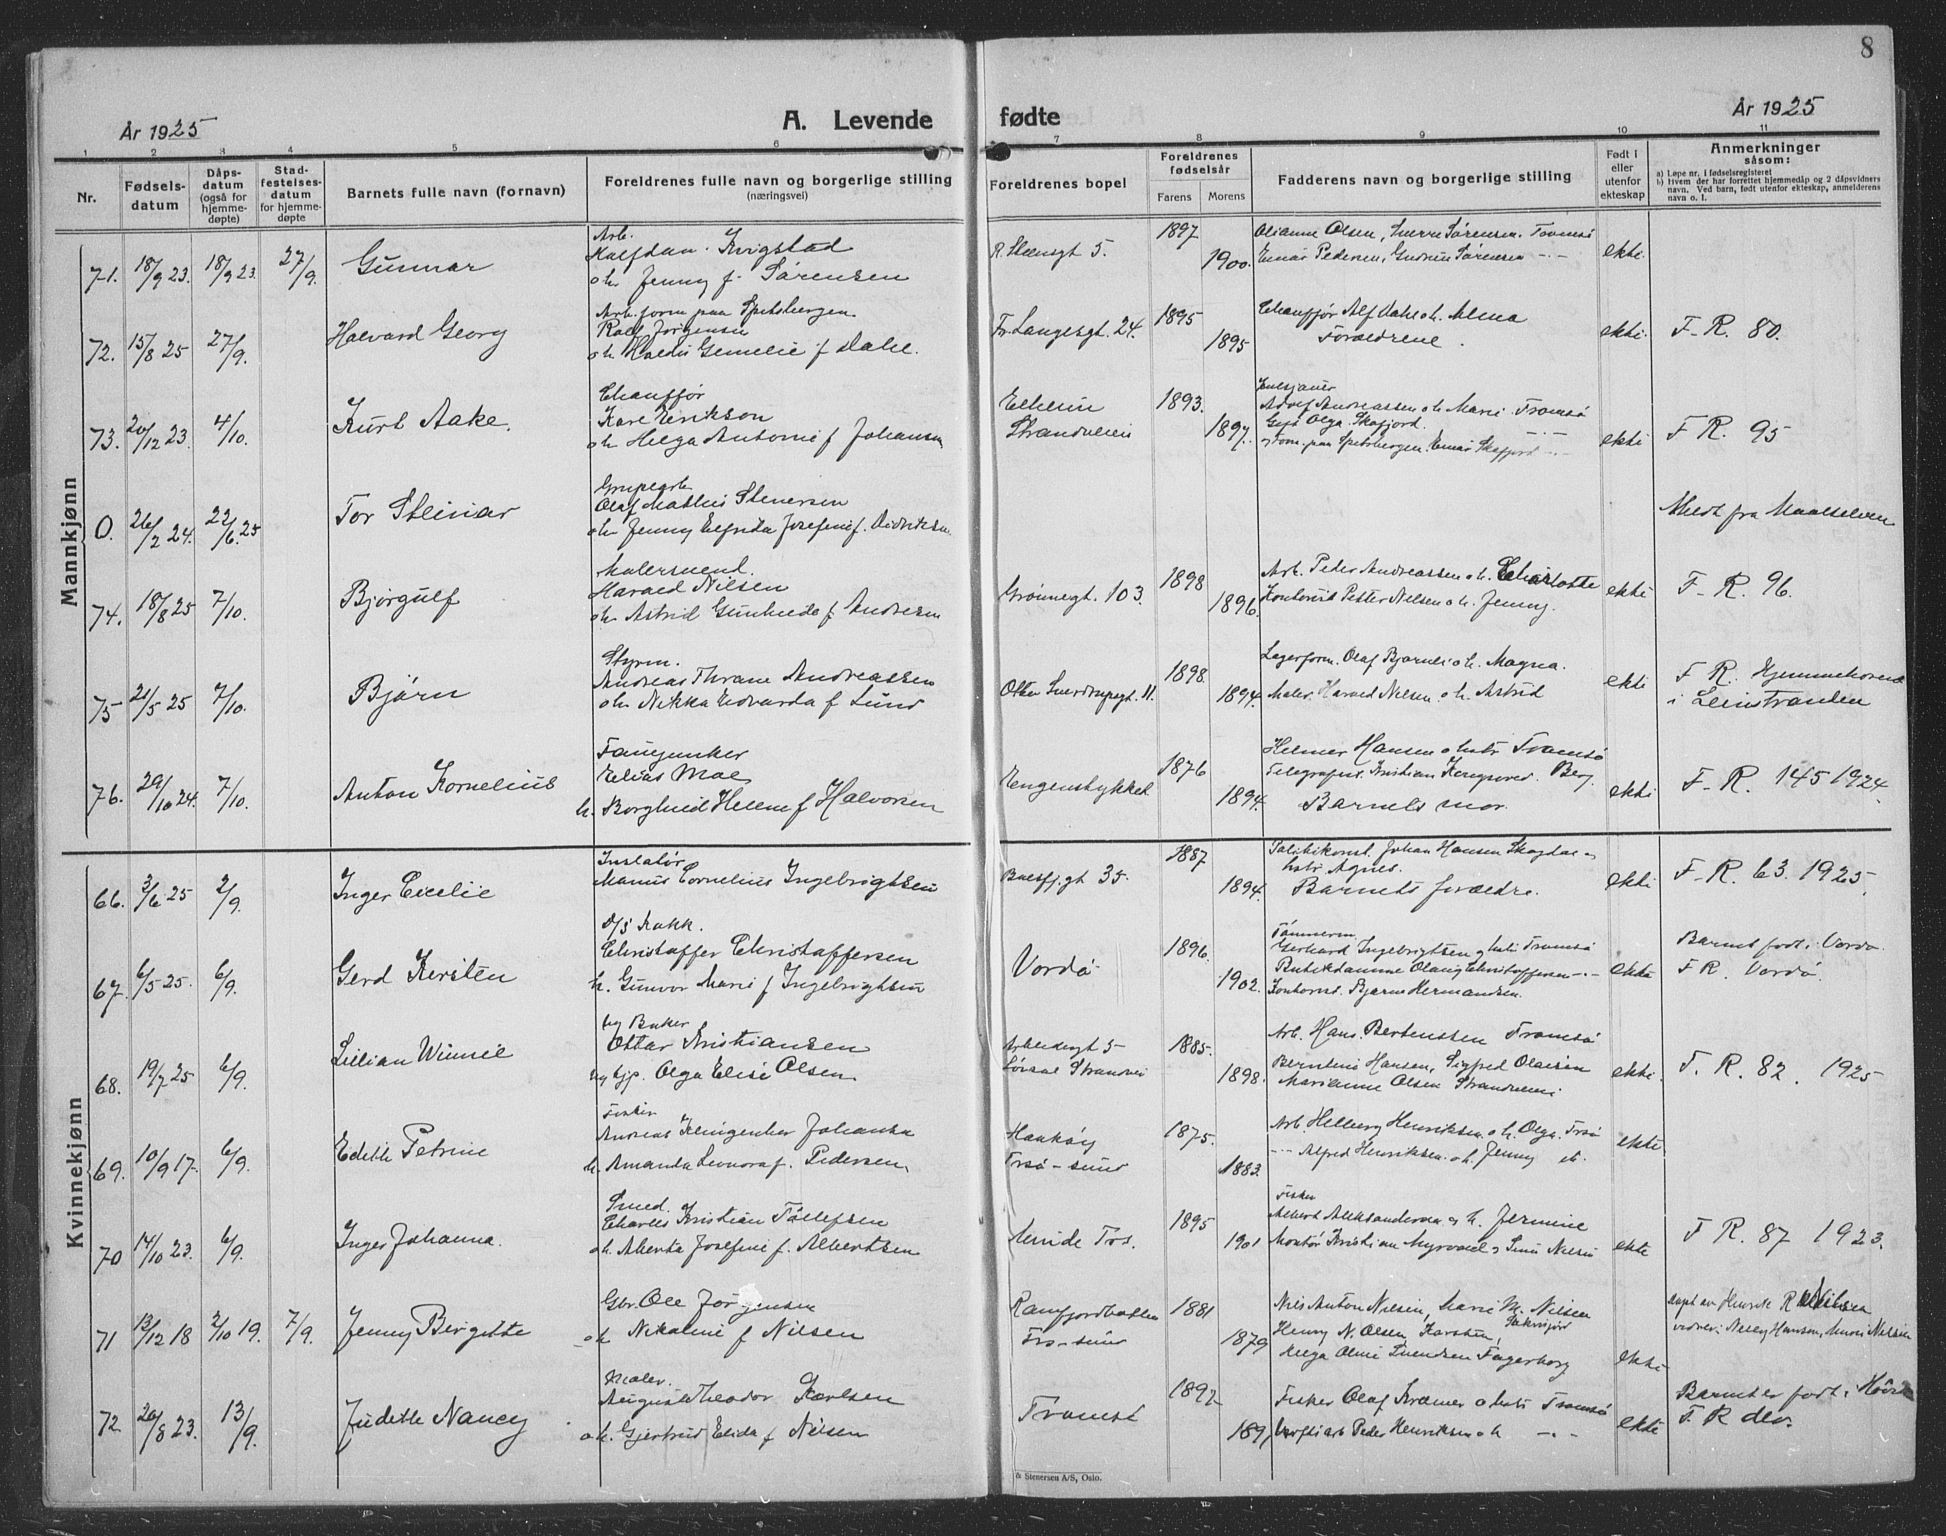 8
År 1925
A. Levende
fødte
År 1925
1 2 3 4 5 6 7 8 9 10 11
Nr.
Fødsels-
datum
Dåps-
datum
(også for
hjemme-
døpte)
Stad-
festelses-
datum
for hjemme-
døpte
Barnets fulle navn (fornavn)
Foreldrenes fulle navn og borgerlige stilling
(næringsvei)
Foreldrenes bopel
Foreldrenes
fødselsår
Farens Morens
Fadderens navn og borgerlige stilling
Født i
eller
utenfor
ekteskap
Anmerkninger
såsom:
a) Løpe nr. i fødselsregisteret
b) Hvem der har forrettet hjemmedåp og 2 dåpsvidners
navn. Ved barn, født utenfor ekteskap, anmelderens
navn o. l.
Mannkjønn
71. 18/9 23. 18/9 23. 27/9. Gunnar
Arb.
Halfdan Kvigstad
o h. Jenny f. Sørensen
R. Stensgt 5. 1897 1900.
Olianne Olsen, Sverre Sørensen. Tromsø
Einar Pedersen, Gudrun Sørensen -..-
ekte.
72. 15/8 25 27/9. Halvard Georg
Arb. form paa Spitsbergen.
Rolf Jørgensen
o h. Haldis Gemelie f Dahl.
Fr. Langesgt. 24. 1895 1895
Chauffør Alf Dahl o h. Alma
Forældrene.
ekte. F. R. 80.
73. 20/12 23. 4/10. Kurt Aake.
Chauffør
Kare Erikson
o h. Helga Antonie f Johansen
Elhein
Strandveien
1893. 1897.
Adolf Andreassen o h. Marie Tromsø
Gift Olga Skafjord. -..-
paa Spitsbergen. Einar Skafjord -..-
ekte F R. 95
0. 26/2 24. 22/6 25 Tor Steinar
Grupearb
Olaf Mathis Stenersen
o h Jenny Elfrida Josefine f. Didriksen
Meldt fra Maalselven
74. 18/8 25 7/10. Bjørgulf
Malersvend.
Harald Nilsen
o h Astrid Gunhilda f Andresen
Grønnegt. 103. 1898 1896.
Arb. Peder Andreassen o h. Charlotte
Kontorist Petter Nelsen o h. Jenny.
ekte F. R. 96.
75 21/5 25 7/10. Bjørn
Styrm.
Andreas Thrane Andreassen
o h Nikka Edvarda f Lund
Otto Sverdrupsgt. 11. 1898 1894.
Lagerform. Olaf Bjarnli o h. Magna.
Maler. Harald Nilsen o h. Astrid
ekte F R. Hjemmehørende
i Leinstranden
76. 29/10 24. 7/10. Anton Kornelius
Fangsmker
Elias Moe
h. Borghild Helene f Halvorsen
Engenstykket 1876 1894.
Helmer Hansen o hstr Tromsø
Telegrafist. Kristian Berg.
Barnets mor.
ekte F. R. 145 1924.
Kvinnekjønn
66. 3/6 25 2/9. Inger Cecilie
Instatør
Manus Cornelius Ingebrigtsen
Balsfjgt 35. 1887 1894.
Johan Hansen Skogdal o
hstr Agnes.
Barnets forældre.
ekte F. R. 63. 1925.
67. 6/5 25. 6/9. Gerd Kersten
D/S Kokk.
Christoffer Christoffersen
h. Gunvor Marie f Ingebrigtsen
Vordø 1896. 1902.
Tømmerm.
Gerhard Ingebrigtsen o hstr Tromsø
Butikdamme Olaug Christoffersen -..-
Kontorist. Bjarne Hermandsen.
ekte Barnet født i Vordø.
F R. Vordø.
68. 19/7 25 6/9. Lilian Winnie
ug Baker
Ottar Kristiansen
ug pp. Olga Elise Olsen.
Arbeidergt 5
Strandvei
1885. 1898.
Arb. Hans. Bertenssen Tromsø
Berntine Hansen, Sigfred Olaisen
Marianne Olsen Strandveien
ekte. F. R. 82. 1925
69. 10/9 17. 6/9. Edith Petrine
Fisker
Andreas Klingenber Johansen
h. Amanda Leonora f. Pedersen,
Haakøy
Trsø-sund
1875. 1883.
Arb. Helberg Henriksen o h. Olga. Trsø
-..- Alfred Henriksen. o h. Jenny
ekte
70 14/10 23. 6/9. Inger Johanna.
Smed.
Charles Kristian Tollefsen
o h. Alberta Josefine f. Albertsen
Minde Trs. 1895 1901
Fisker
Albert Aleksandersen o h. Jermine
Montør Kristian Myrvold o Nilsen
ekte F R. 87 1923.
71 13/12 18 2/10 19. 7/9. Jenny Bergitte
Gbr. Ole Jørgensen
o h Nikoline f Nilsen
Ramfjordbotten
Trs-sund
1881 1879
Nils Anton Nilsen, Marie M. Nilsen
Henry N. Olsen, Karsten,
Helga Olini Svendsen Fagerborg
ekte
Døpt av Henrik R Nilsen
vidner: Nelly Hansen, Marie Nilsen
72. 26/8 23. 13/9. Judith Nancy
Maler.
August Theodor Karlsen
o h. Gjertrud Elida f Nilsen
Tromsø 1892 1891
Fisker Olaf Kræmer o hstr Tromsø
Verftsarb Peder Henriksen o h -..-
ekte
Barnet er født i
F. R der.
& Stenersen A/S, Oslo.